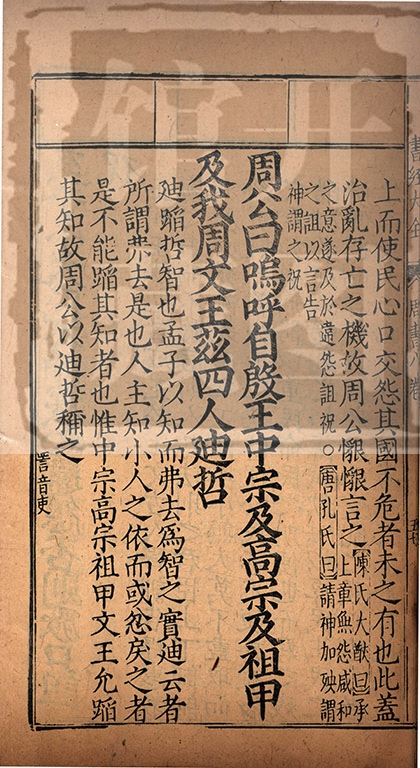 上而使民心口交怨其國不危者未之有也此蓋
治亂存亡之機故周公懇懇言之
陳氏大猷曰承
上章無怨咸和
之意遂及於違怨詛祝○唐孔氏曰請神加殃謂
之詛以言告
神謂之祝
周公曰嗚呼自殷王中宗及高宗及祖甲
及我周文王茲四人迪哲
迪蹈哲智也孟子以知而弗去爲智之實迪云者
所謂弗去是也人主知小人之依而或忿戾之者
是不能蹈其知者也惟中宗高宗祖甲文王允蹈
其知故周公以迪哲稱之